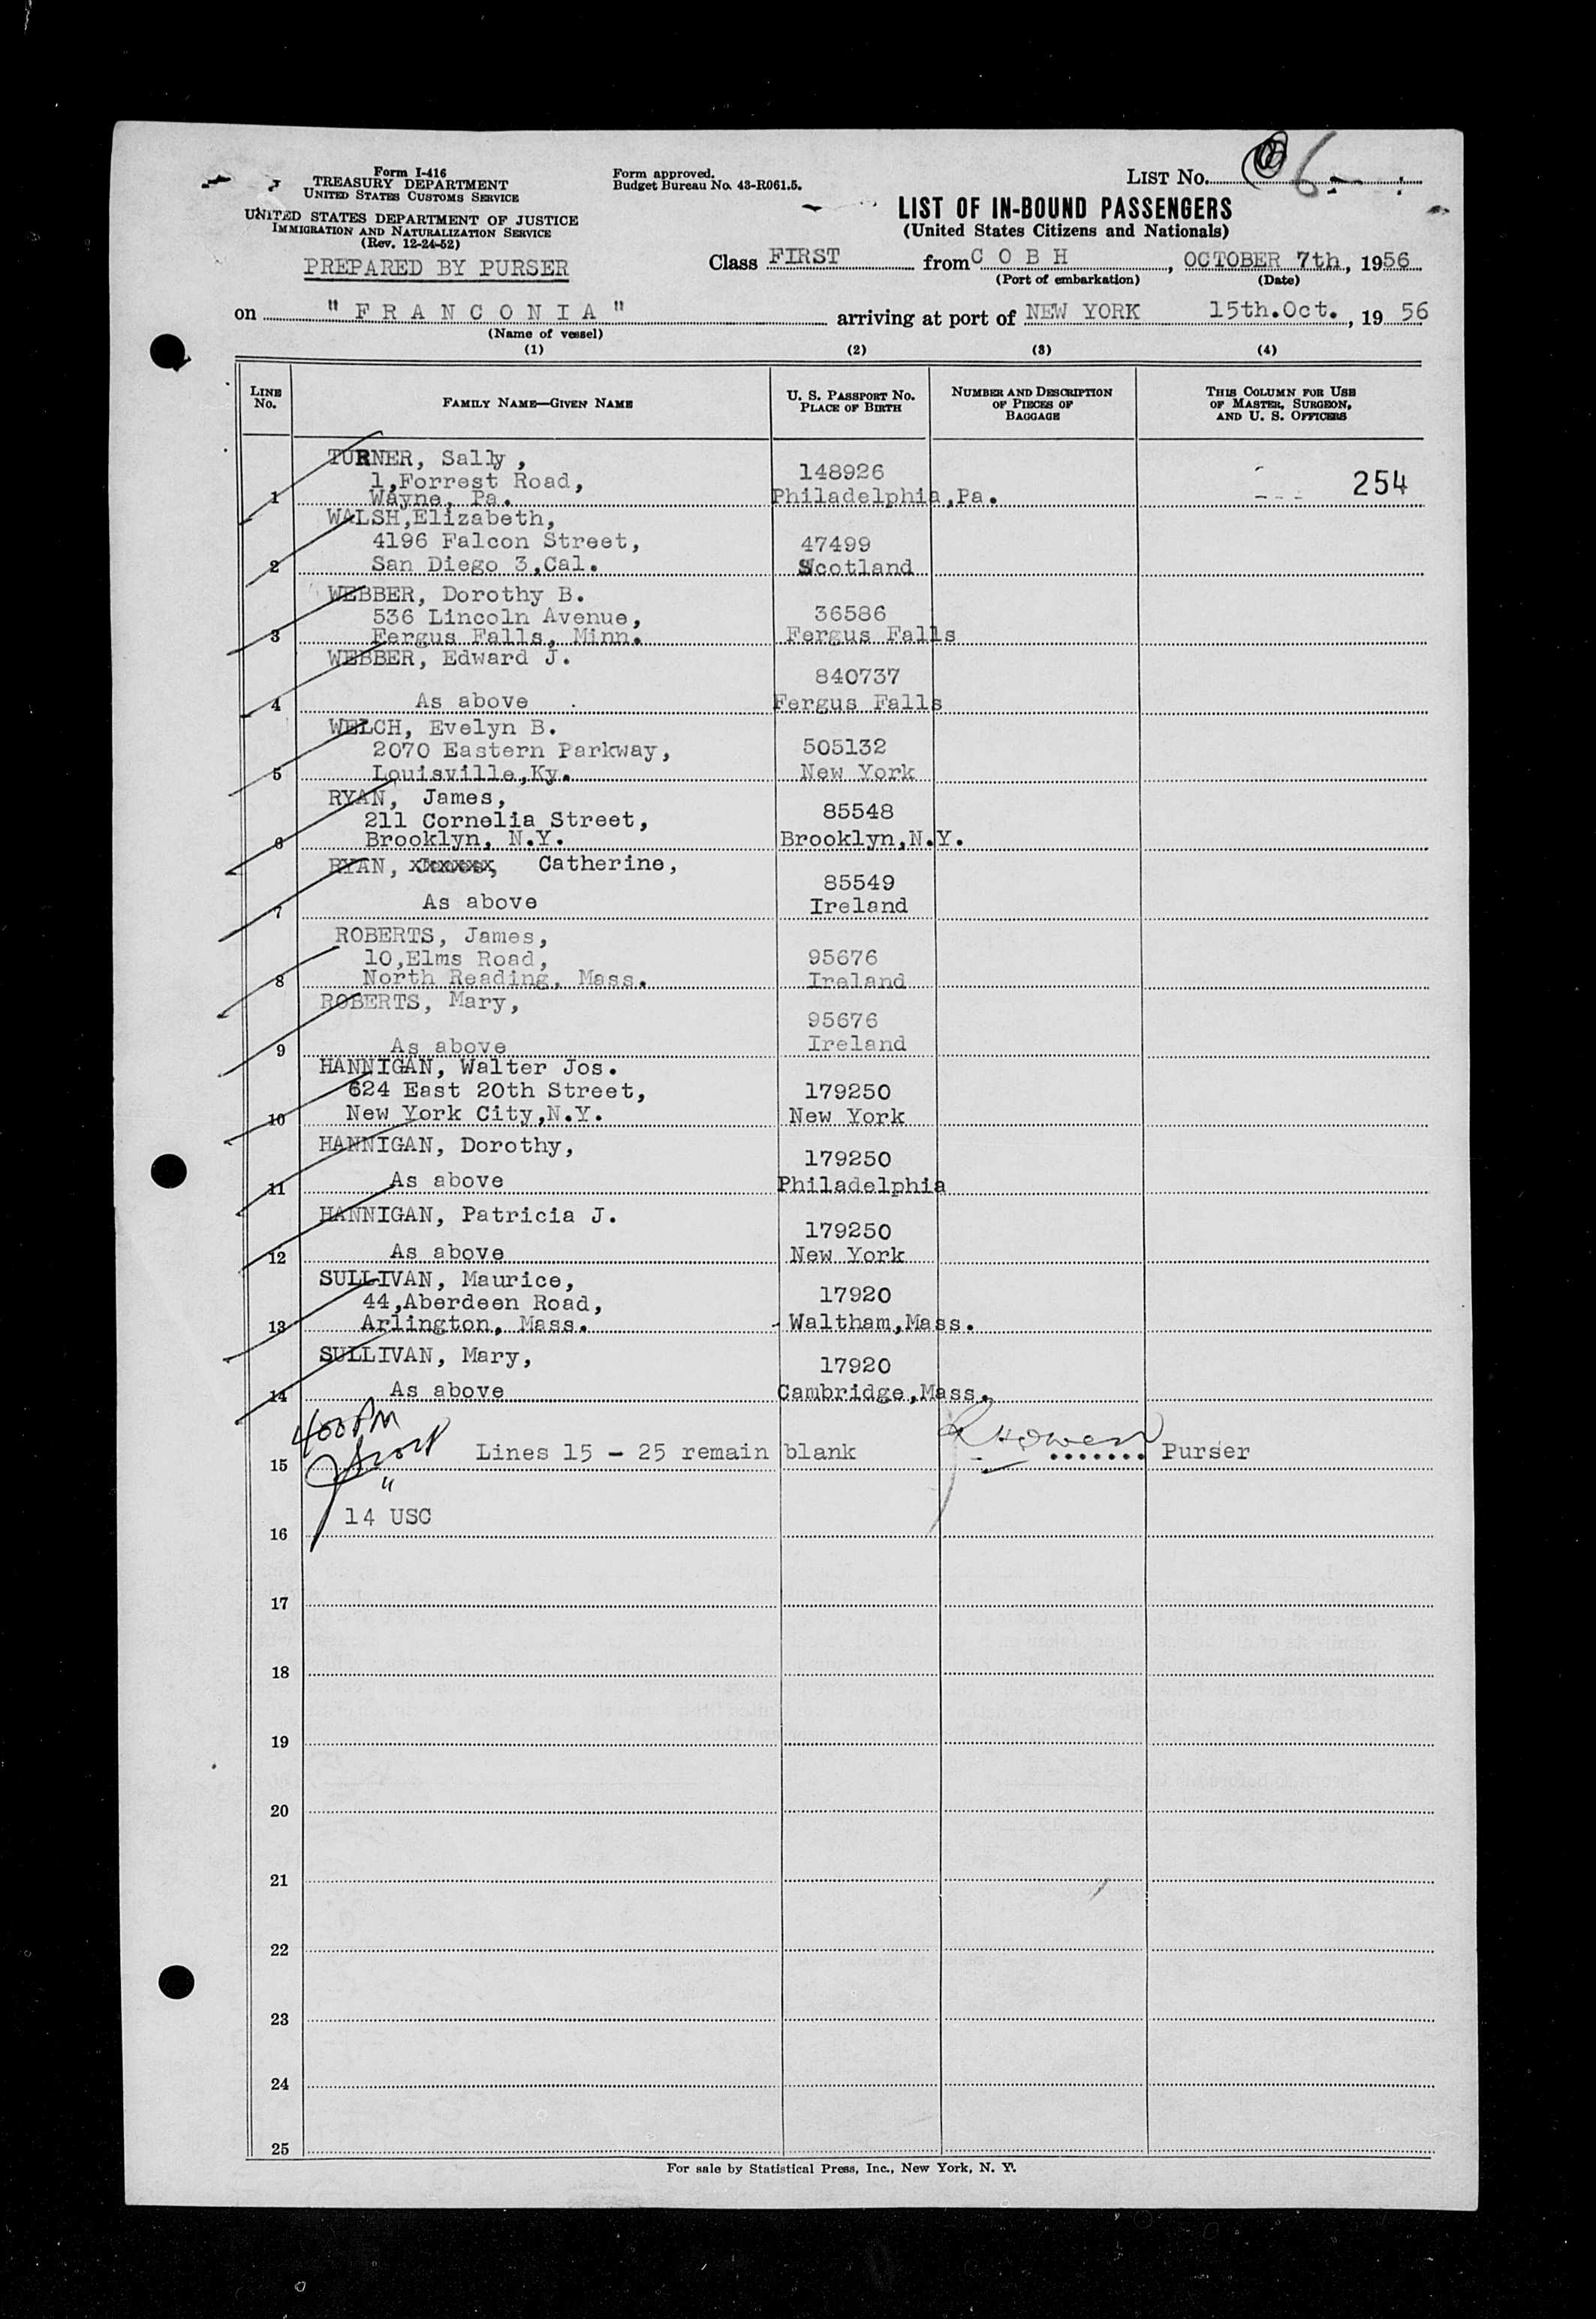 Form I-416
TREASURY DEPARTMENT
UNITED STATES CUSTOMS SERVICE
UNITED STATES DEPARTMENT OF JUSTICE
IMMIGRATION AND NATURALIZATION SERVICE
(Rev. 12-24-52)
PREPARED BY PURSER
Form approved.
Budget Bureau No. 43-R061.5.
LIST No. 6
LIST OF IN-BOUND PASSENGERS
(United States Citizens and Nationals)
Class FIRST from C O B H, OCTOBER 7th, 1956
(Port of embarkation) (Date)
on "F R A N C O N I A" arriving at port of NEW YORK 15th.Oct., 1956
(Name of vessel)
(1) (2) (3) (4)
LINE No. FAMILY NAME—GIVEN NAME U. S. PASSPORT No. PLACE OF BIRTH NUMBER AND DESCRIPTION OF PIECES OF BAGGAGE THIS COLUMN FOR USE OF MASTER, SURGEON, AND U. S. OFFICERS
TURNER, Sally,
1,Forrest Road, 148926 254
1 Wayne, Pa. Philadelphia,Pa.
WALSH,Elizabeth,
4196 Falcon Street, 47499
2 San Diego 3,Cal. Scotland
WEBBER, Dorothy B.
536 Lincoln Avenue, 36586
3 Fergus Falls, Minn. Fergus Falls
WEBBER, Edward J.
840737
4 As above Fergus Falls
WELCH, Evelyn B.
2070 Eastern Parkway, 505132
5 Louisville,Ky. New York
RYAN, James,
211 Cornelia Street, 85548
6 Brooklyn, N.Y. Brooklyn,N.Y.
RYAN, Catherine,
85549
7 As above Ireland
ROBERTS, James,
10,Elms Road, 95676
8 North Reading, Mass. Ireland
ROBERTS, Mary,
95676
9 As above Ireland
HANNIGAN, Walter Jos.
624 East 20th Street, 179250
10 New York City,N.Y. New York
HANNIGAN, Dorothy,
179250
11 As above Philadelphia
HANNIGAN, Patricia J.
179250
12 As above New York
SULLIVAN, Maurice,
44,Aberdeen Road, 17920
13 Arlington, Mass. Waltham,Mass.
SULLIVAN, Mary,
17920
14 As above Cambridge,Mass.
400 PM
15 Lines 15 - 25 remain blank ....... Purser
14 USC
16
17
18
19
20
21
22
23
24
25
For sale by Statistical Press, Inc., New York, N. Y.